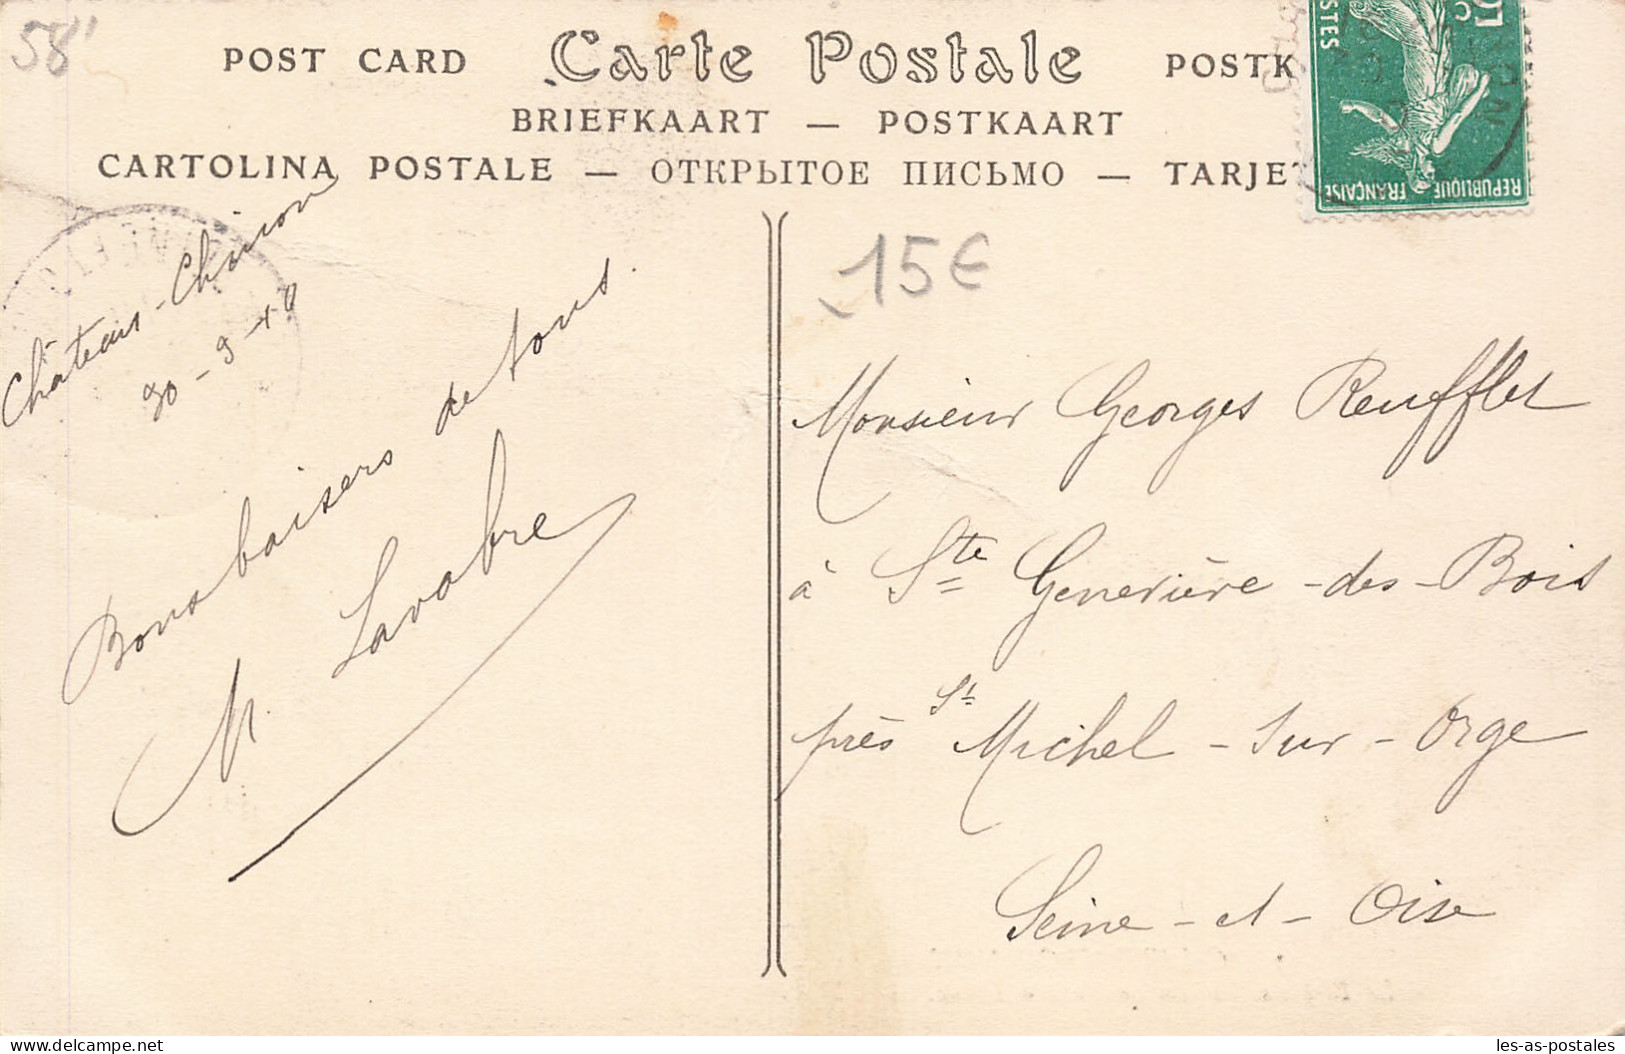 58
POST CARD Carte Postale POSTK
BRIEFKAART — POSTKAART
CARTOLINA POSTALE — ОТКРЫТОЕ ПИСЬМО — TARJET
5c
POSTES
REPUBLIQUE FRANÇAISE
SEINE ET O
Château-Chinon
30-9-10
Bons baisers de tous
M. Lavabre
15€
Monsieur Georges Reufflet
à Ste Geneviève-des-Bois
près St Michel-sur-Orge
Seine-et-Oise
Delcampe.net
les-as-postales